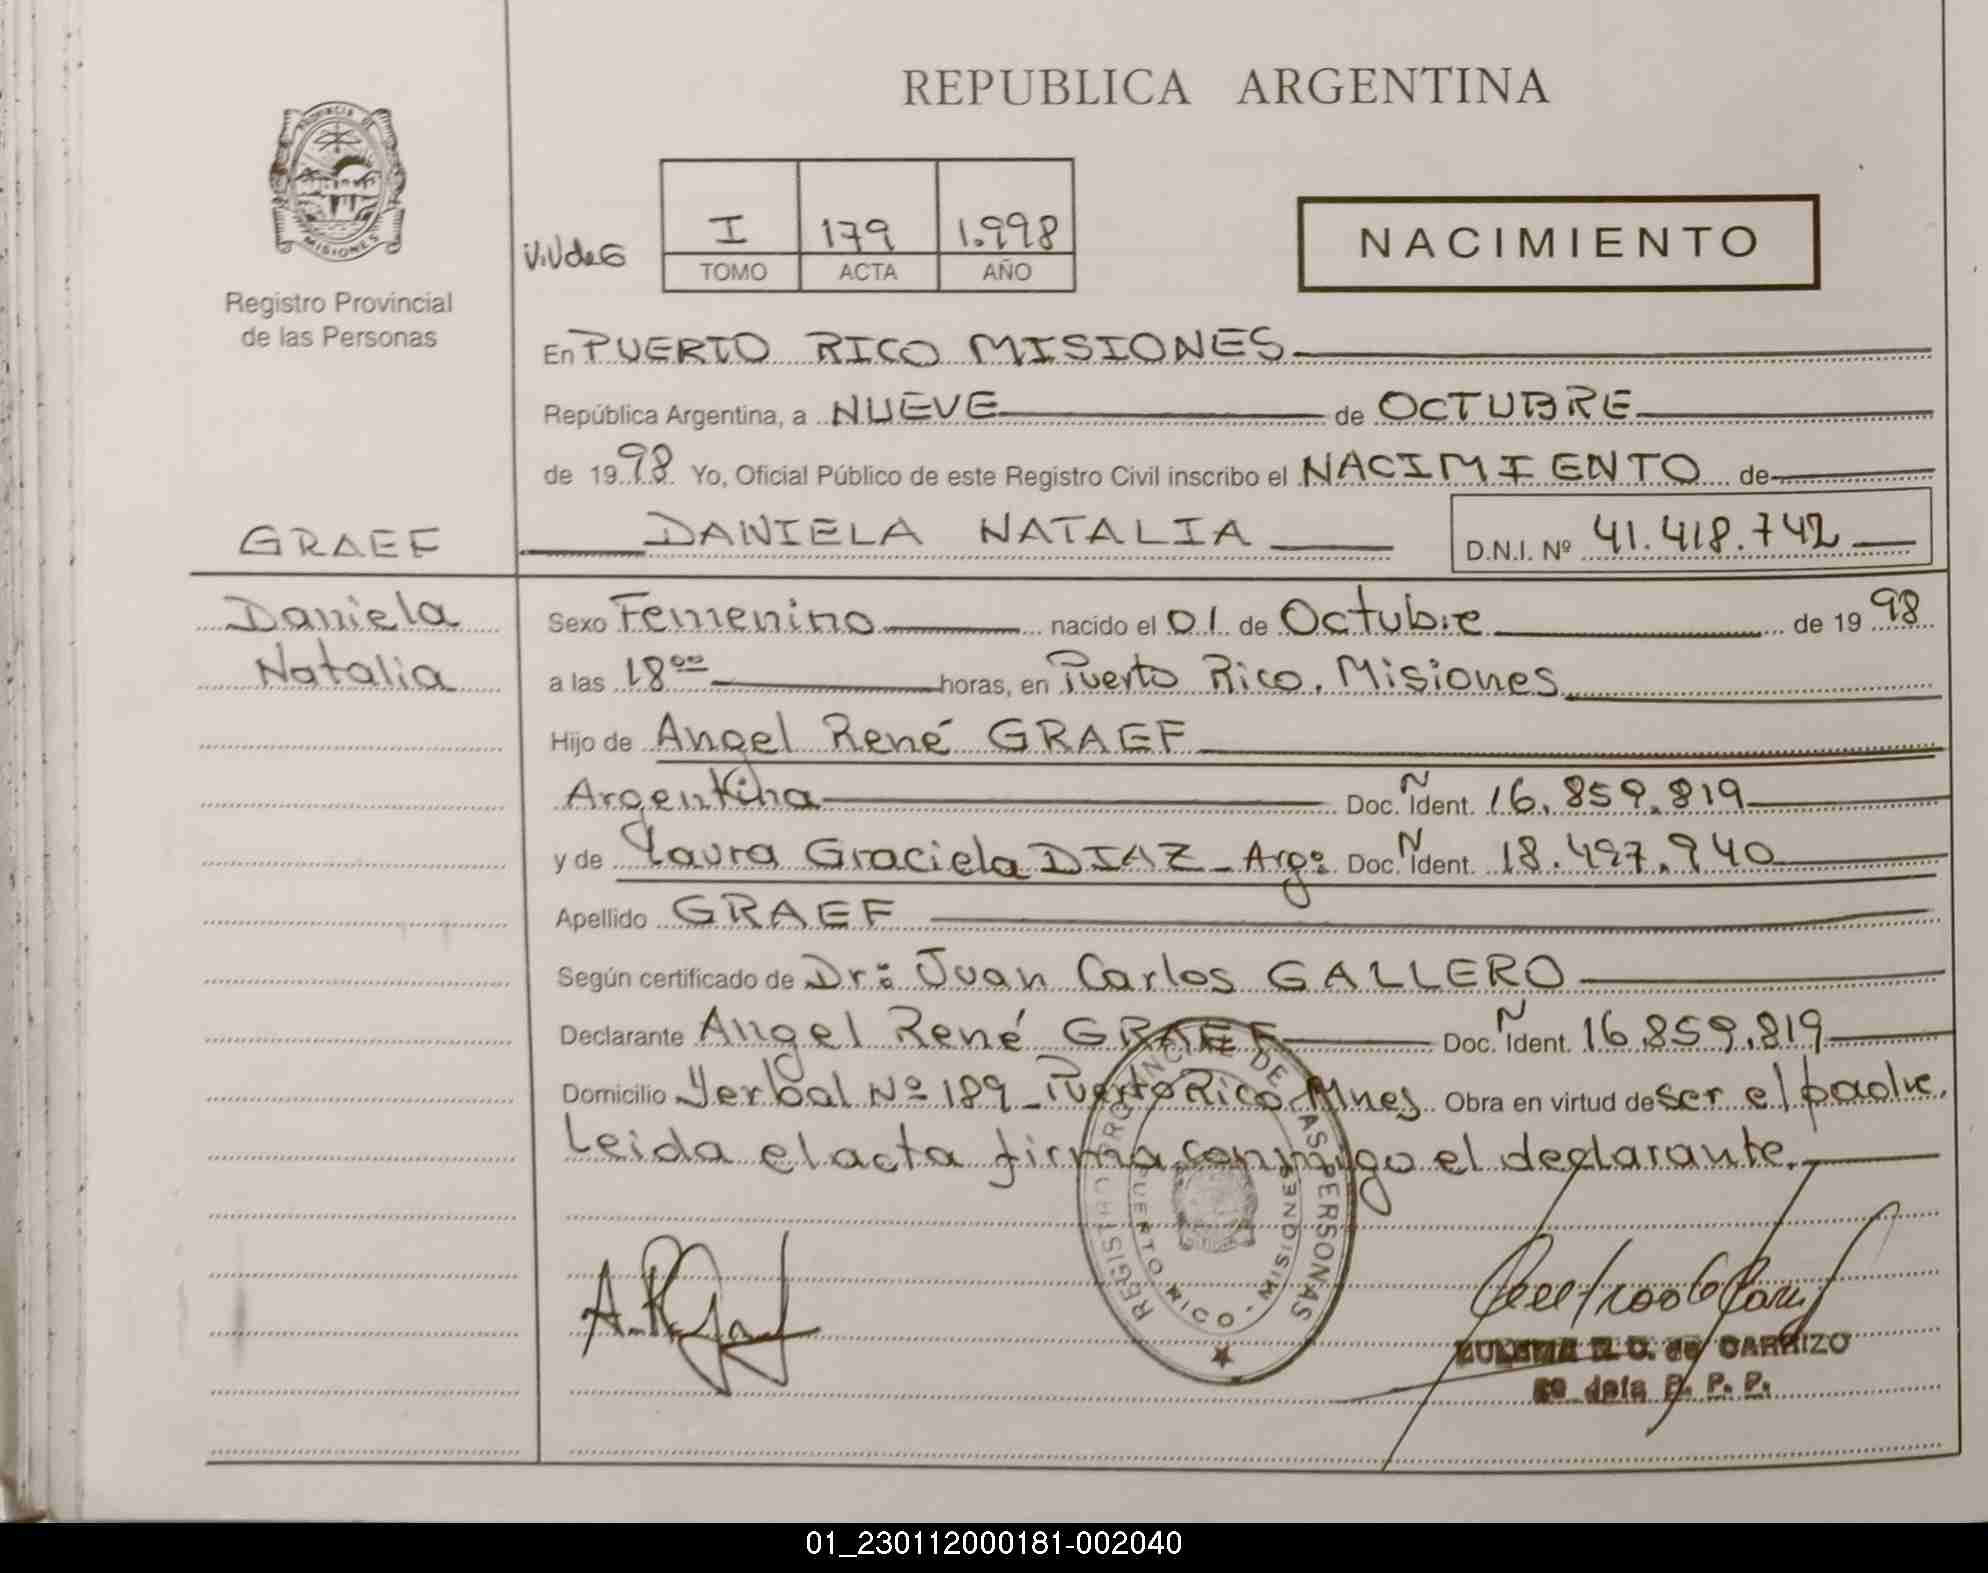 REPUBLICA ARGENTINA
PROVINCIA DE
MISIONES
Registro Provincial
de las Personas
I 179 1.998
TOMO ACTA AÑO
NACIMIENTO
En PUERTO RICO MISIONES
República Argentina, a NUEVE de OCTUBRE
de 1998 Yo, Oficial Público de este Registro Civil inscribo el NACIMIENTO de
GRAEF
DANIELA NATALIA
D.N.I. Nº 41.418.742
Daniela
Natalia
Sexo Femenino nacido el 01 de Octubre de 1998
a las 18⁰⁰ horas, en Puerto Rico. Misiones
Hijo de Angel René GRAEF
Argentina Doc. Ñ Ident. 16.859.819
y de Laura Graciela DIAZ - Arg: Doc. Ñ Ident. 18.497.940
Apellido GRAEF
Según certificado de Dr: Juan Carlos GALLERO
Declarante Angel René GRAEF Doc. Ñ Ident. 16.859.819
Domicilio Yerbal Nº 189 - Puerto Rico Mnes Obra en virtud de ser el padre.
Leida el acta firma conmigo el declarante.
REGISTRO PROVINCIAL DE LAS PERSONAS
PUERTO RICO - MISIONES
de CARRIZO
R. P. P.
01_230112000181-002040